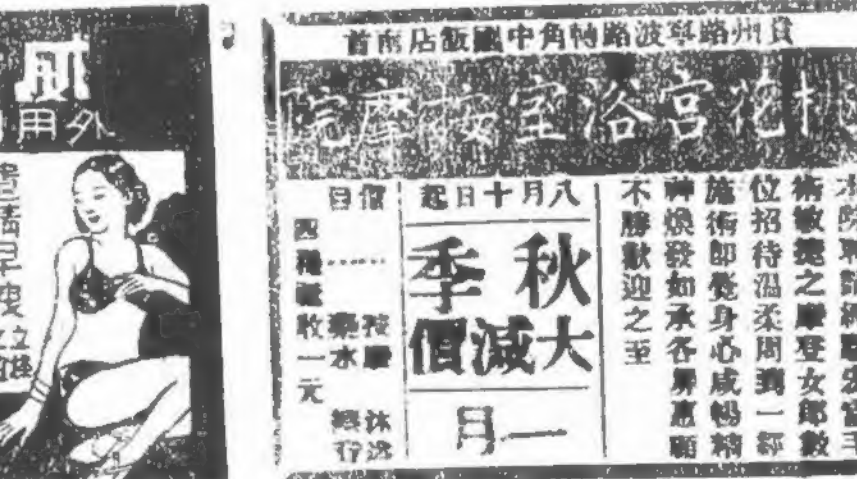 貴州路寧波路轉角中國飯店南首
桃花宮浴室按摩院
本院聘請經驗宏富手
術敏捷之摩登女郎數
位招待溫柔周到一經
施術即覺身心咸暢精
神煥發如承各界惠顧
不勝歡迎之至
八月十日起
秋季
大減價
一月
價目
按摩 沐浴
藥水
四種祗收一元
外用
遺精早洩